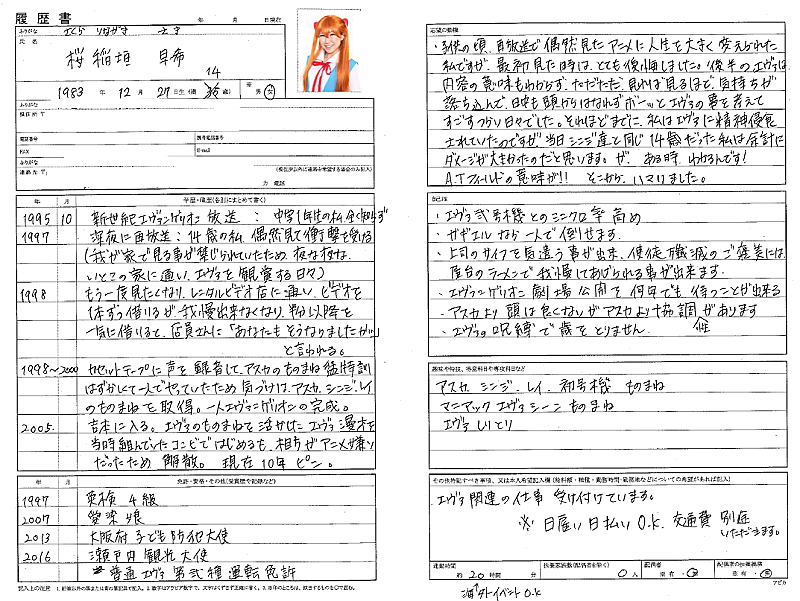 履歴書
年 月 日現在
ふりがな さくら いながき さき
氏名
桜 稲垣 早希
14
1983 年 12 月 27 日生(満 歳) 男・女
ふりがな
現住所 〒
電話番号
携帯電話番号
FAX
E-mail
ふりがな
連絡先 〒 (現住所以外に連絡を希望する場合のみ記入)
方 電話
年 月 学歴・職歴(各別にまとめて書く)
1995 10 新世紀エヴァンゲリオン放送:中学1年生の私、全く知らず
1997 深夜に再放送:14歳の私、偶然見て衝撃を受ける
(我が家で見る事が禁じられていたため、夜な夜な
いとこの家に通い、エヴァを観賞する日々)
1998 もう一度見たくなり、レンタルビデオ店に通い、ビデオを
1本ずつ借りるが、我慢出来なくなり、
一気に借りると、店員さんに「あなたもそうなりましたか…」
と言われる。
1998~2000 カセットテープに声を録音して、アスカのものまね猛特訓
はずかしくて一人でやっていたため、気づけば、アスカ、シンジ、レイ
のものまねを取得。一人エヴァンゲリオンの完成。
2005 吉本に入る。エヴァのものまねを活かしたエヴァ漫才を
当時組んでいたコンビではじめるも、相方がアニメ嫌い
だったため 解散。 現在10年 ピン。
年 月 免許・資格・その他(受賞歴や記録など)
1997 英検 4級
2007 愛染娘
2013 大阪府 子ども防犯大使
2016 瀬戸内 観光大使
普通エヴァ 第弐種 運転免許
志望の動機
・子供の頃、再放送で偶然見たアニメに人生を大きく変えられた
私ですが、最初見た時は、とても後悔しました。後半のエヴァは
内容の意味もわからず、ただただ、見れば見るほど、気持ちが
落ち込んで、日中も頭からはなれずボーッとエヴァの事を考えて
すごすつらい日々でした。それほどまでに、私はエヴァに精神侵食
されていたのですが、当日シンジ達と同じ14歳だった私は余計に
ダメージが大きかったのだと思います。が、ある時、わかるんです!
A.T.フィールドの意味が!! そこから、ハマりました。
自己PR
・エヴァ弐号機とのシンクロ率高め
・ガギエルなら一人で倒せます。
・上司のサイフを気遣う事が出来、使徒殲滅のご褒美には、
屋台のラーメンで我慢してあげられる事が出来ます。
・エヴァンゲリオン劇場公開を何年でも待つことが出来る
・アスカより頭は良くないがアスカより協調性があります
・エヴァの呪縛で歳をとりません。
趣味や特技、得意科目や専攻科目など
アスカ シンジ レイ 初号機 ものまね
マニアックエヴァシーン ものまね
エヴァしりとり
その他特記すべき事項、又は本人希望記入欄
エヴァ関連の仕事 受け付けています。
※ 日雇い日払いO.K. 交通費 別途
いただきます。
通勤時間
約 20 時間 分
扶養家族数(配偶者を除く)
0 人
配偶者
有・無
配偶者の扶養義務
有・無
O.K